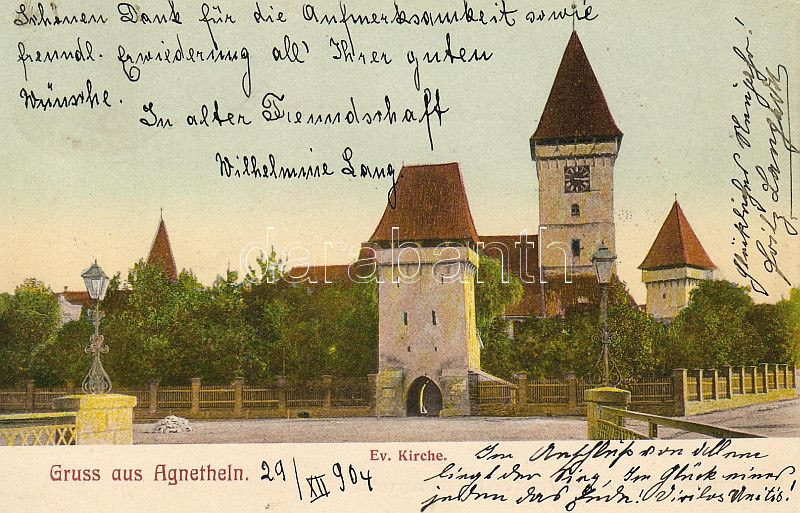 Schönen Dank für die Aufmerksamkeit sowie
freundl. Erwiederung all' Ihrer guten
Wünsche.
In alter Freundschaft
Wilhelmine Lang
Glückliches Neujahr!
Fritz Lang
darabanth
Ev. Kirche.
Gruss aus Agnetheln.
29/XII 904
Im Aufschluß von allem
liegt der Sieg, Im Glück eines
jeden das Ende! Viribus Unitis!